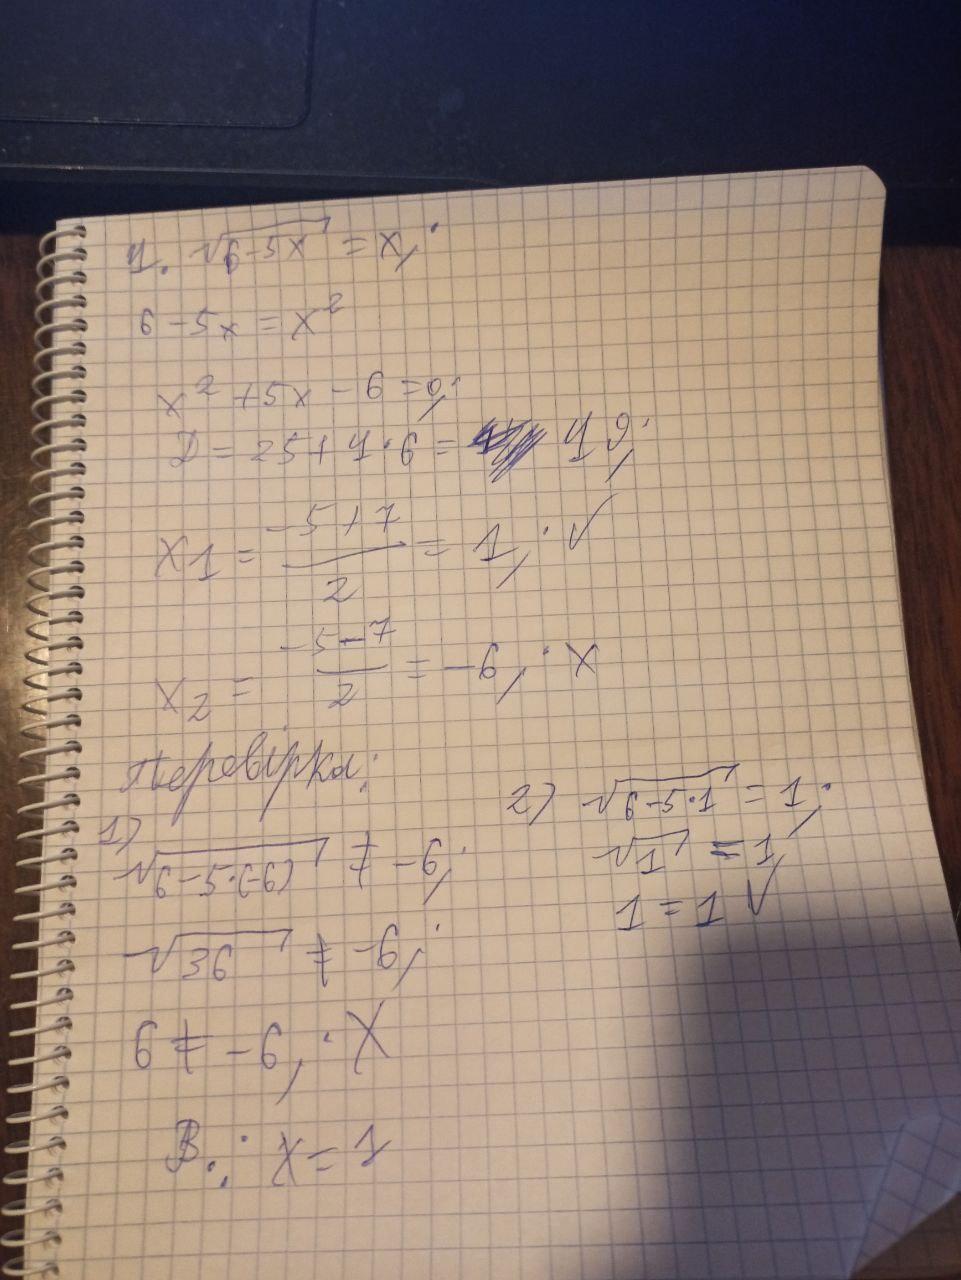 1. √(6-5x) = x;
6 - 5x = x²
x² + 5x - 6 = 0;
D = 25 + 4·6 = 49;
x1 = (-5+7)/2 = 1; ✓
x2 = (-5-7)/2 = -6; X
Перевірка:
1)
√(6-5·(-6)) ≠ -6;
√36 ≠ -6;
6 ≠ -6; X
2) √(6-5·1) = 1;
√1 = 1;
1 = 1 ✓
В.: x = 1